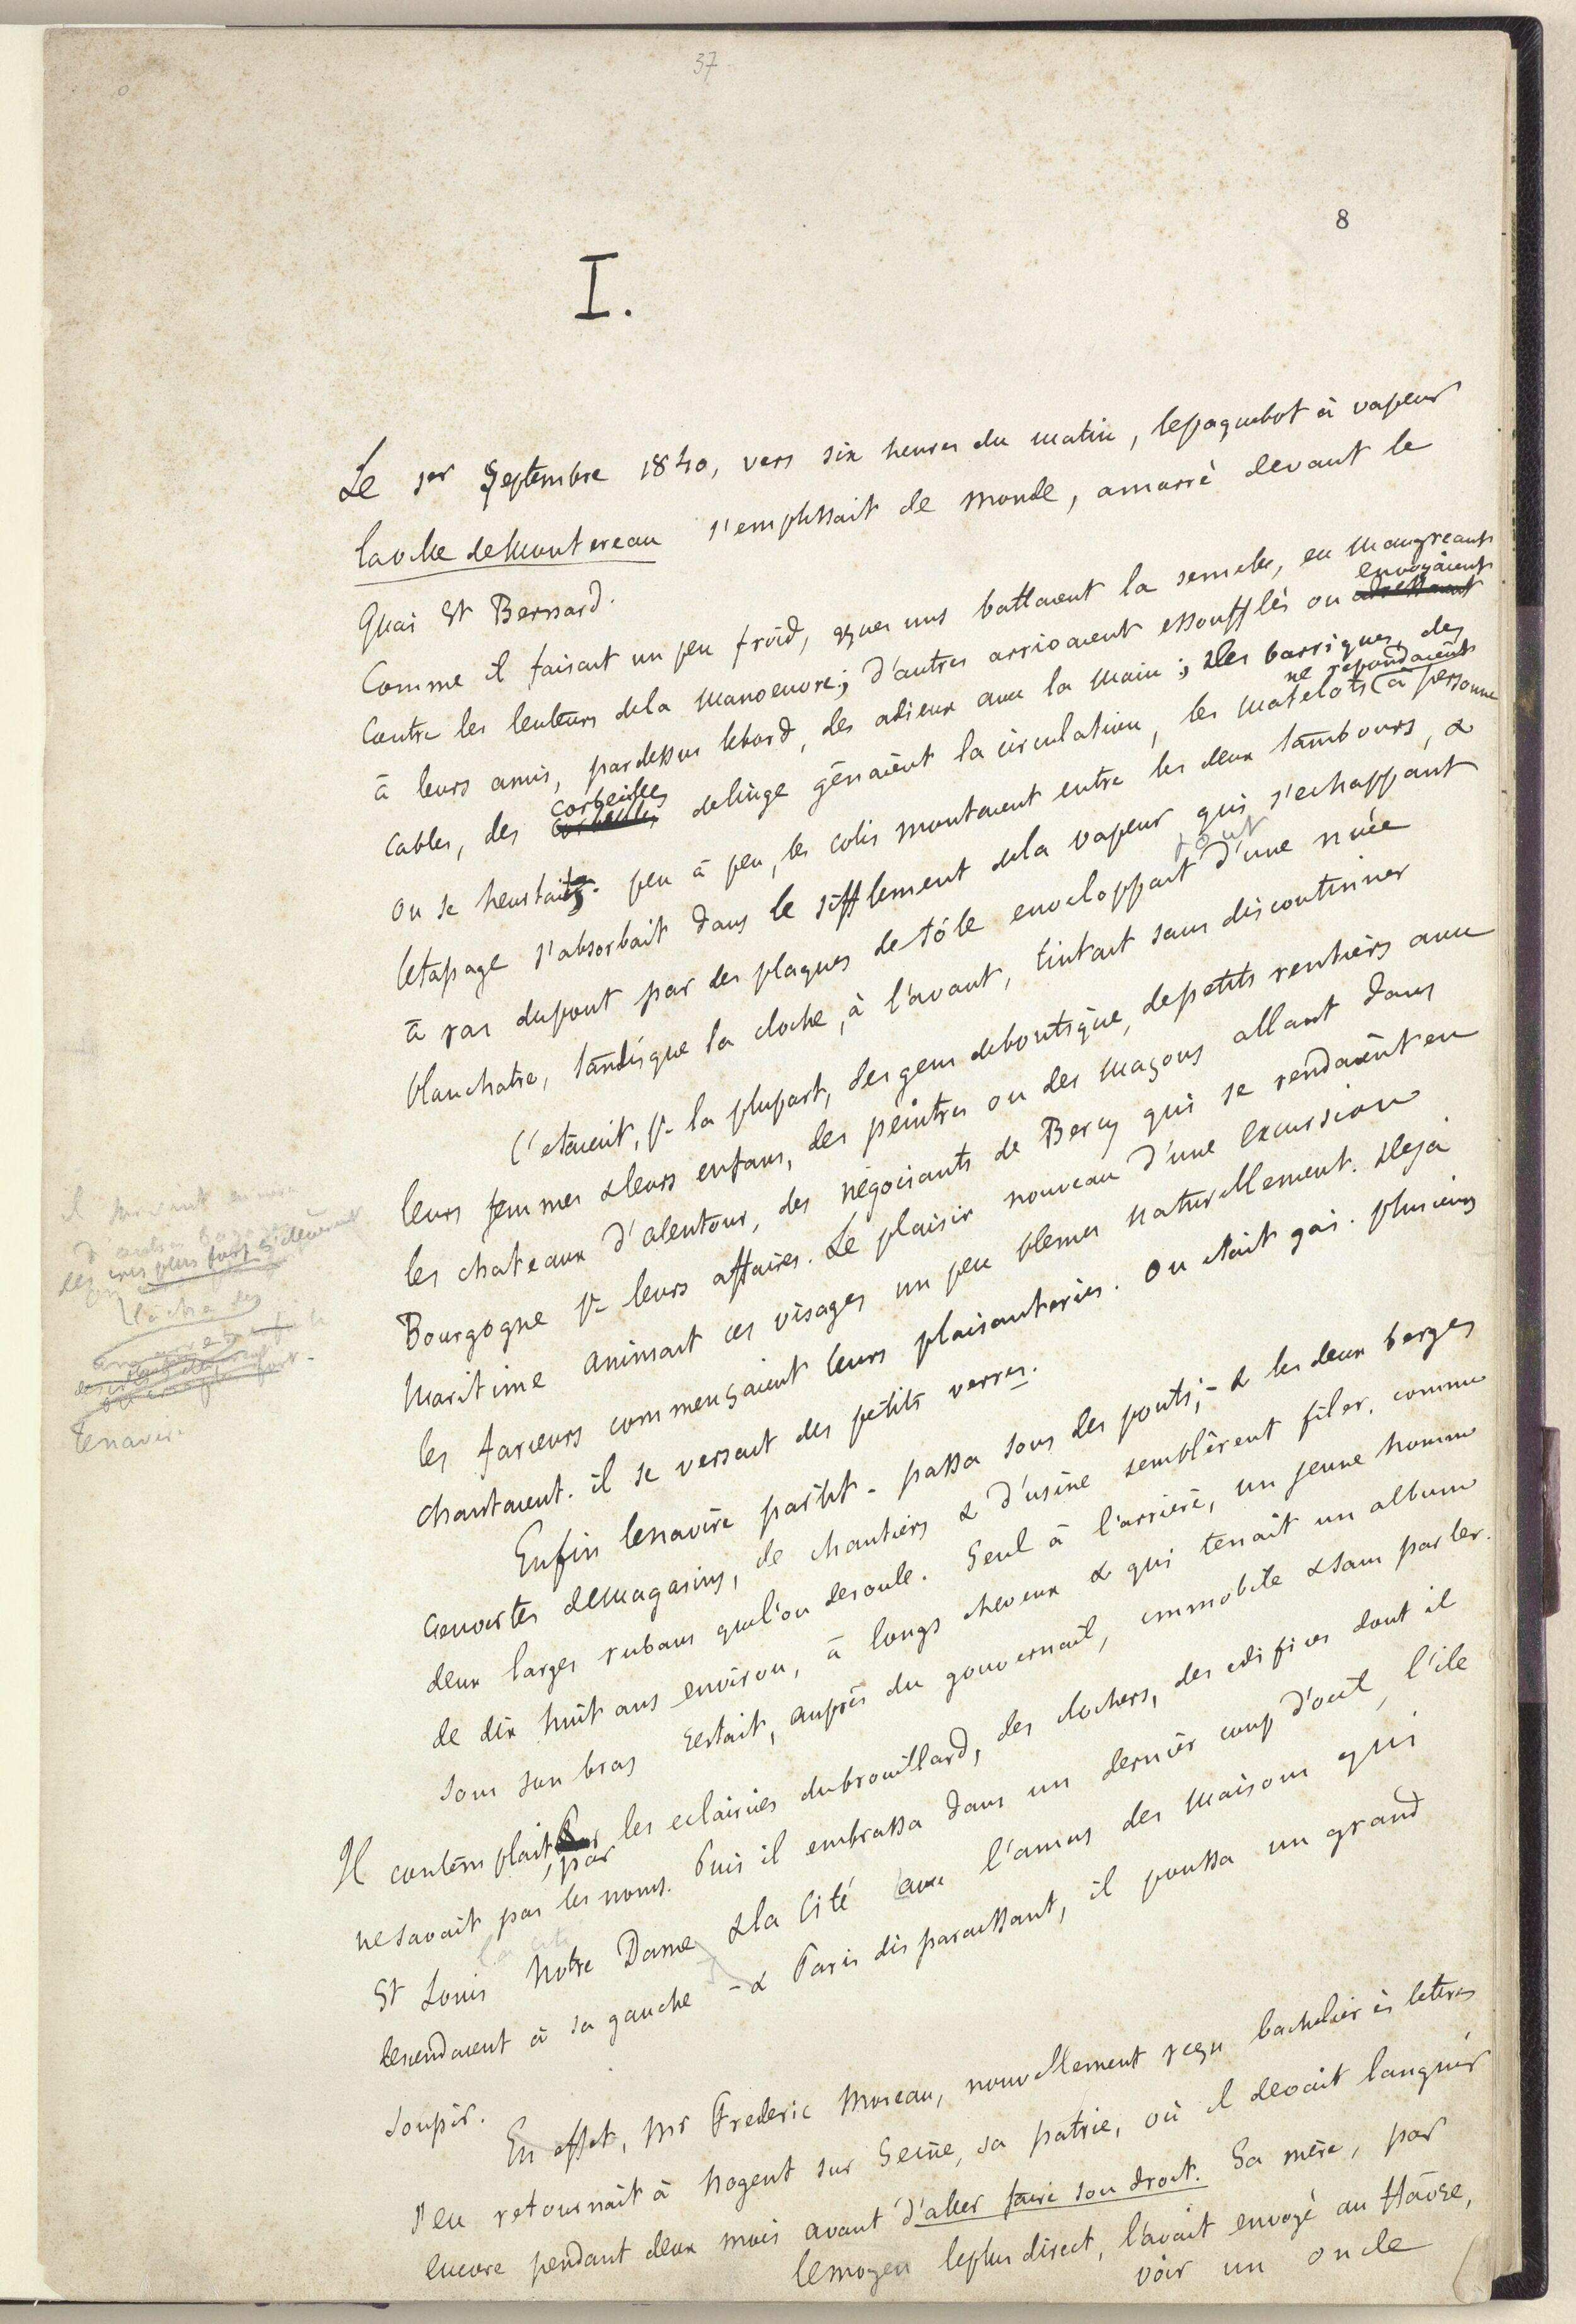 37
8
I.
Le 1er Septembre 1840, vers six heures du matin, lepaquebot à vapeur
laville deMontereau s'emplissait de monde, amarré devant le
Quai St Bernard.
Comme il faisait un peu froid, qques uns battaient la semelle, en maugreant
contre les lenteurs dela manoeuvre; d'autres arrivaient essoufflés ou adressaient envoyaient
à leurs amis, pardessus lebord, des adieux avec la main; des barriques, des
cables, des corbeilles corbeilles delinge gênaient la circulation, les matelots ne repondaient à personne
on se heurtait. peu à peu, les colis montaient entre les deux tambours, &
letapage s'absorbait dans le sifflement dela vapeur qui s'echappant
à ras dupont par des plaques de tôle enveloppait tout d'une nuée
blanchatre, tandisque la cloche, à l'avant, tintait sans discontinuer
C'etaient, pr la plupart, des gens deboutique, depetits rentiers avec
leurs femmes &leurs enfans, des peintres ou des maçons allant dans
les chateaux d'alentour, des négociants de Bercy qui se rendaient en
Bourgogne pr leurs affaires. Le plaisir nouveau d'une excursion
maritime animait ces visages un peu blemes naturellement. Déjà
les farceurs commençaient leurs plaisanteries. on était gai. plusieurs
chantaient. il se versait des petits verres.
Enfin lenavire partit - passa sous des ponts; - & les deux berges
couvertes demagasins, de chantiers & d'usine semblèrent filer, comme
deux larges rubans quel'on deroule. Seul à l'arrière, un jeune homme
de dix huit ans environ, à longs cheveux & qui tenait un album
sous son bras restait, auprès du gouvernail, immobile &sans parler.
Il contemplait, par les eclaircies dubrouillard, des clochers, des edifices dont il
nesavait pas les noms. Puis il embrassa dans un dernier coup d'oeil, l'ile
la cité
St Louis Notre Dame &la Cité avec l'amas des maisons qui
descendaient à sa gauche - & Paris disparaissant, il poussa un grand
soupir.
En effet, Mr Frederic Moreau, nouvellement reçu bachelier ès lettres
s'en retournait à Nogent sur Seine, sa patrie, où il devait languir
encore pendant deux mois avant d'aller faire son droit. Sa mère, par
lemoyen leplus direct, l'avait envoyé au Hâvre,
voir un oncle
d'autres
des cris plus forts s'élèvent
lâcha des
lenavire